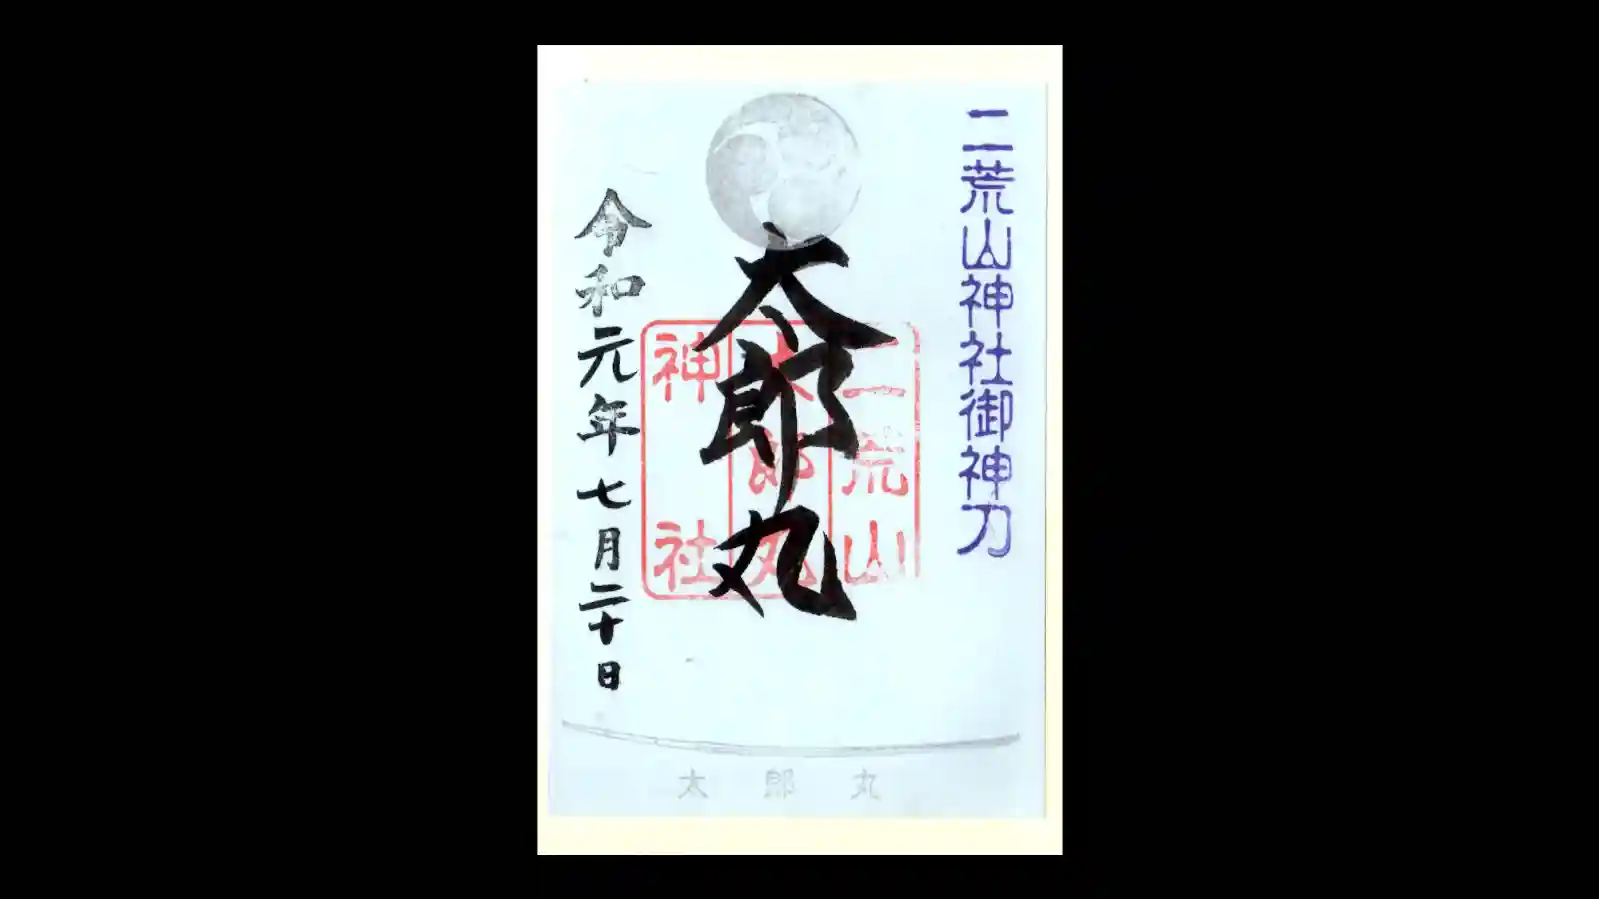 二荒山神社御神刀
太郎丸
二荒山
太郎丸
神社
令和元年七月二十日
太郎丸